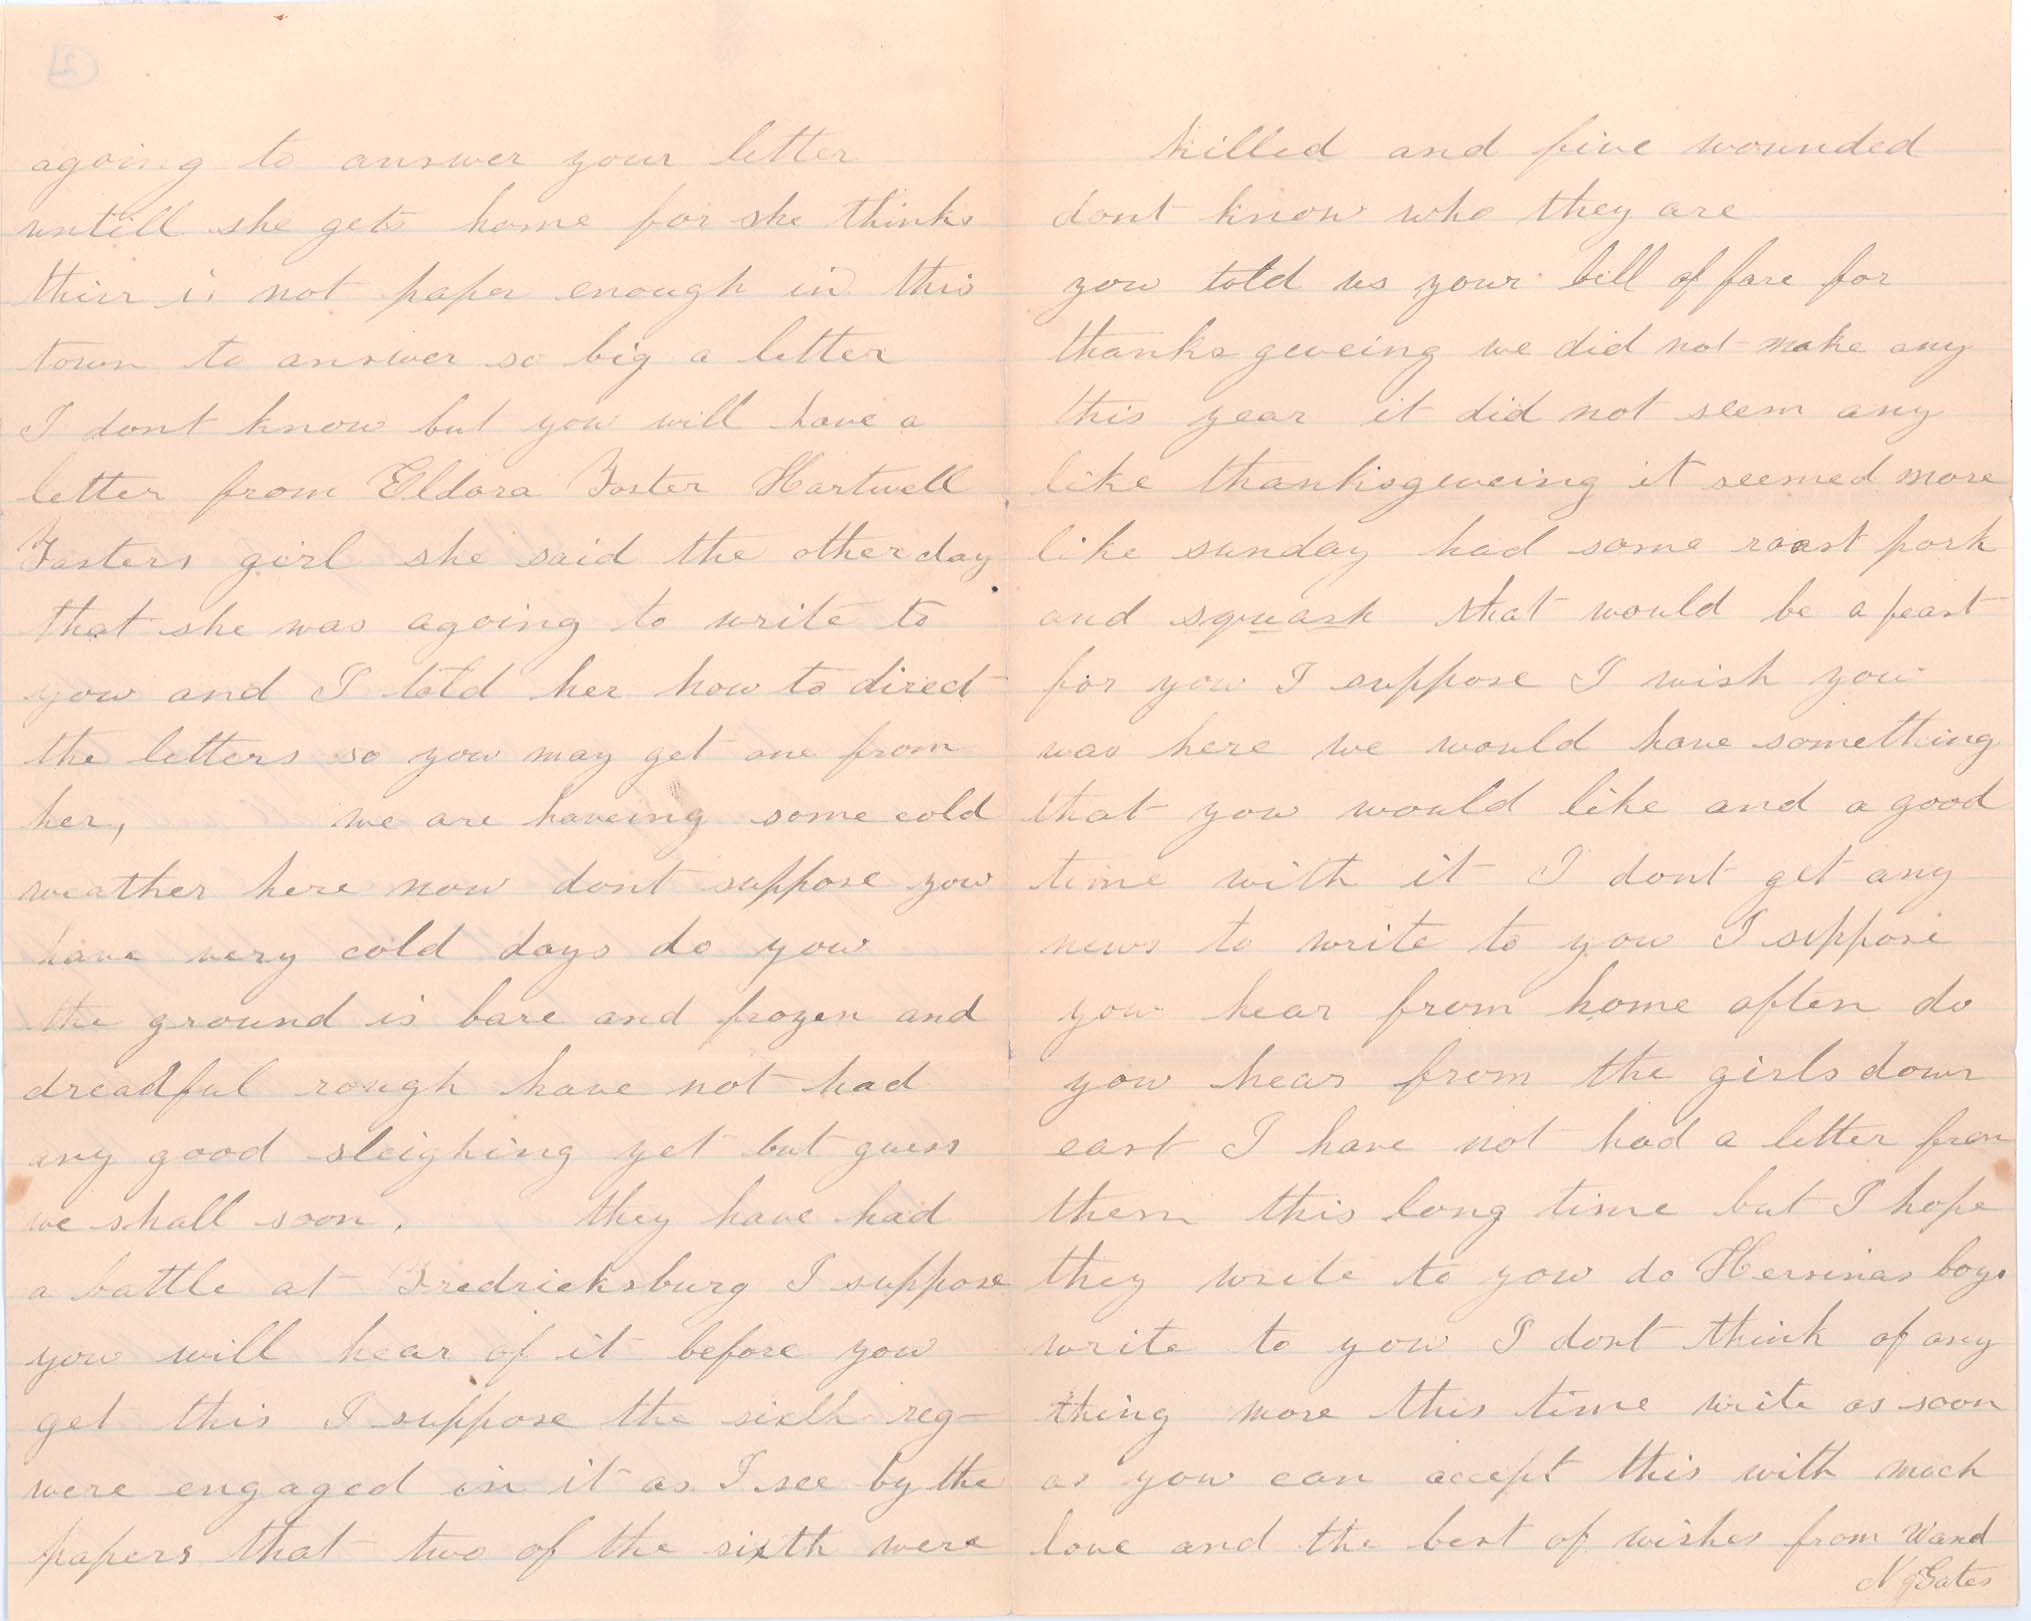 agoing to answer your letter
untill she gets home for she thinks
thier is not paper enough in this
town to answer so big a letter
I dont know but you will have a
letter from Eldora Foster Hartwell
Fosters girl she said the other day
that she was agoing to write to
you and I told her how to direct
the letters so you may get one from
her, we are haveing some cold
weather here now dont suppose you
have very cold days do you
the ground is bare and frozen and
dreadful rough have not had
any good sleighing yet but guess
we shall soon. they have had
a battle at Fredricksburg I suppose
you will hear of it before you
get this I suppose the sixth reg-
were engaged in it as I see by the
papers that two of the sixth were
killed and five wounded
dont know who they are
you told us your bill of fare for
thanks geveing we did not make any
this year it did not seem any
like thanksgeveing it seemed more
like sunday had some roast pork
and squash that would be a feast
for you I suppose I wish you
was here we would have something
that you would like and a good
time with it I dont get any
news to write to you I suppose
you hear from home often do
you hear from the girls down
east I have not had a letter from
them this long time but I hope
they write to you do boys
write to you I dont think of any
thing more this time write as soon
as you can accept this with much
love and the best of wishes from
Gates